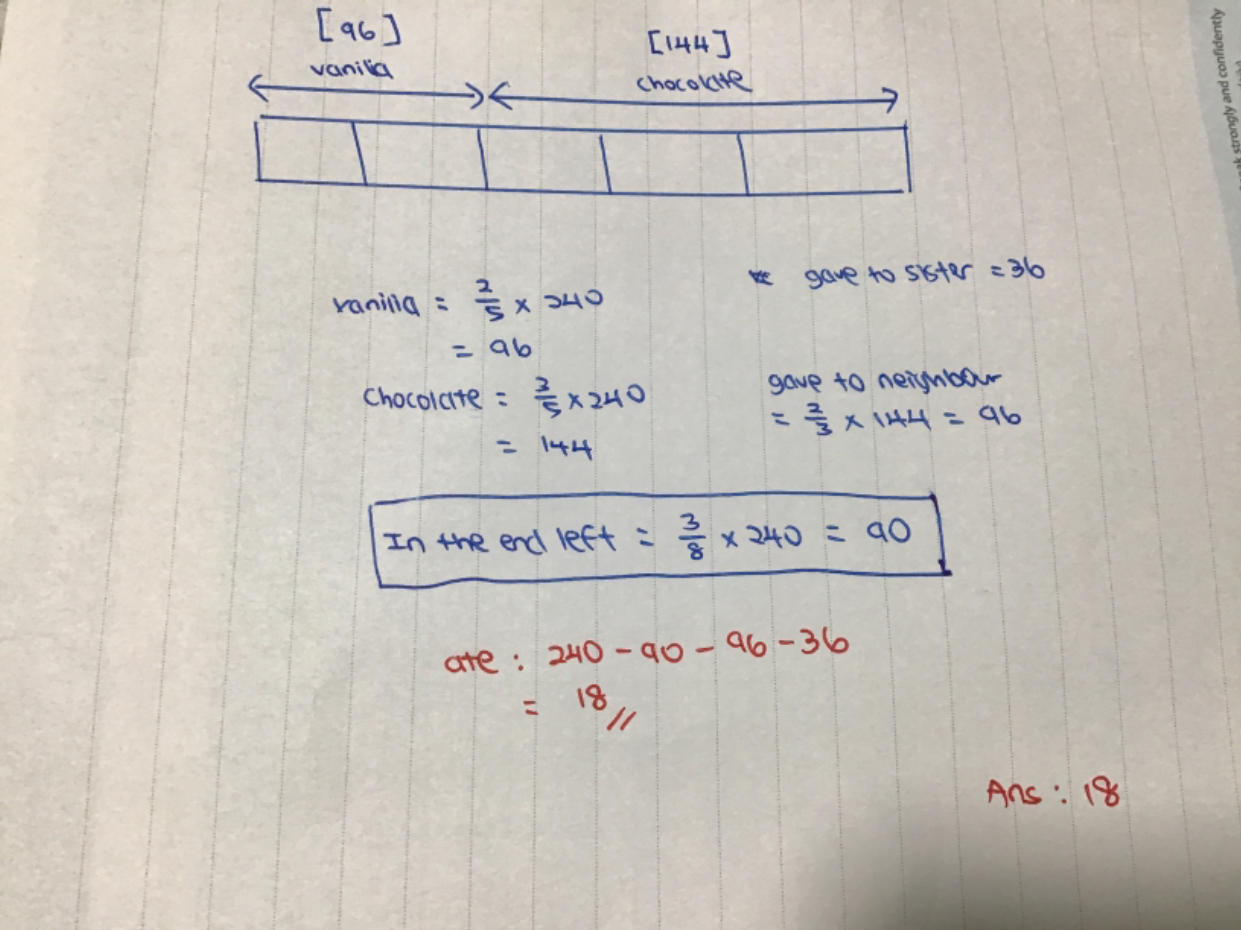 [96]
vanilla
[144]
chocolate
vanilla = 2/5 × 240
= 96
Chocolate = 3/5 × 240
= 144
gave to sister = 36
gave to neighbour
= 2/3 × 144 = 96
In the end left = 3/8 × 240 = 90
ate : 240 - 90 - 96 - 36
= 18 //
Ans : 18
strongly and confidently